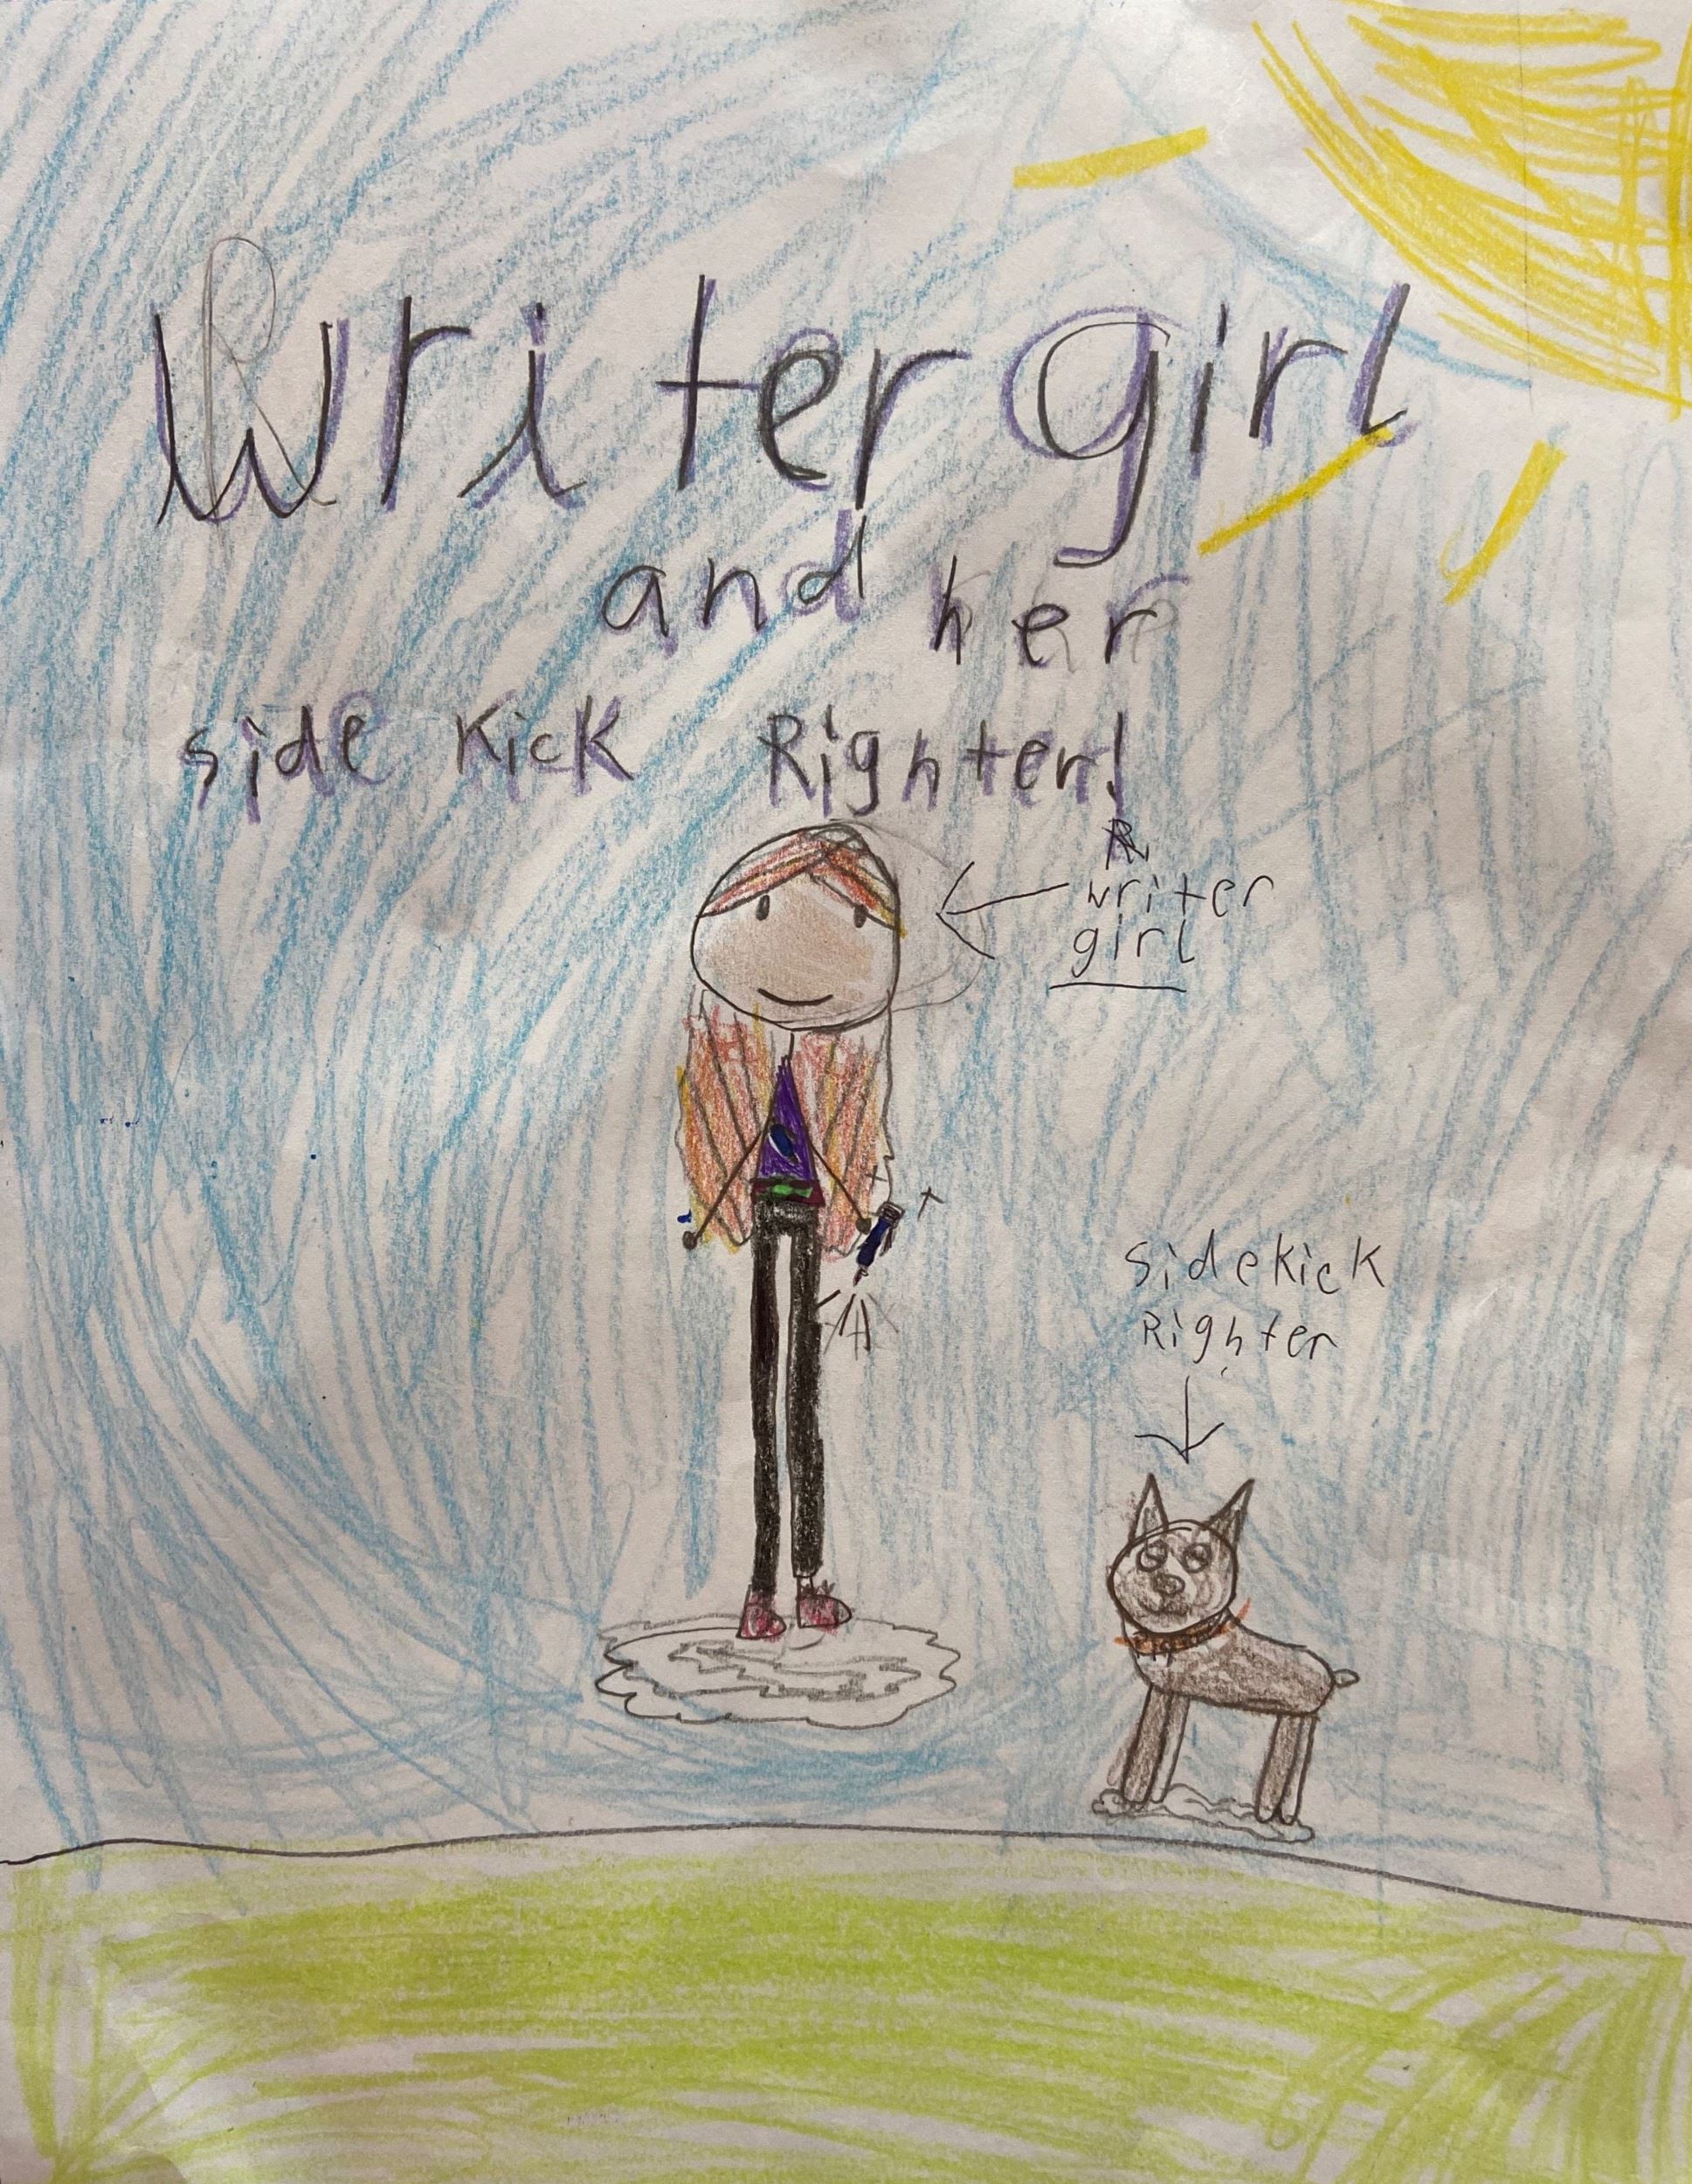 Writer girl
and her
side Kick Righter!
writer
girl
sidekick
Righter